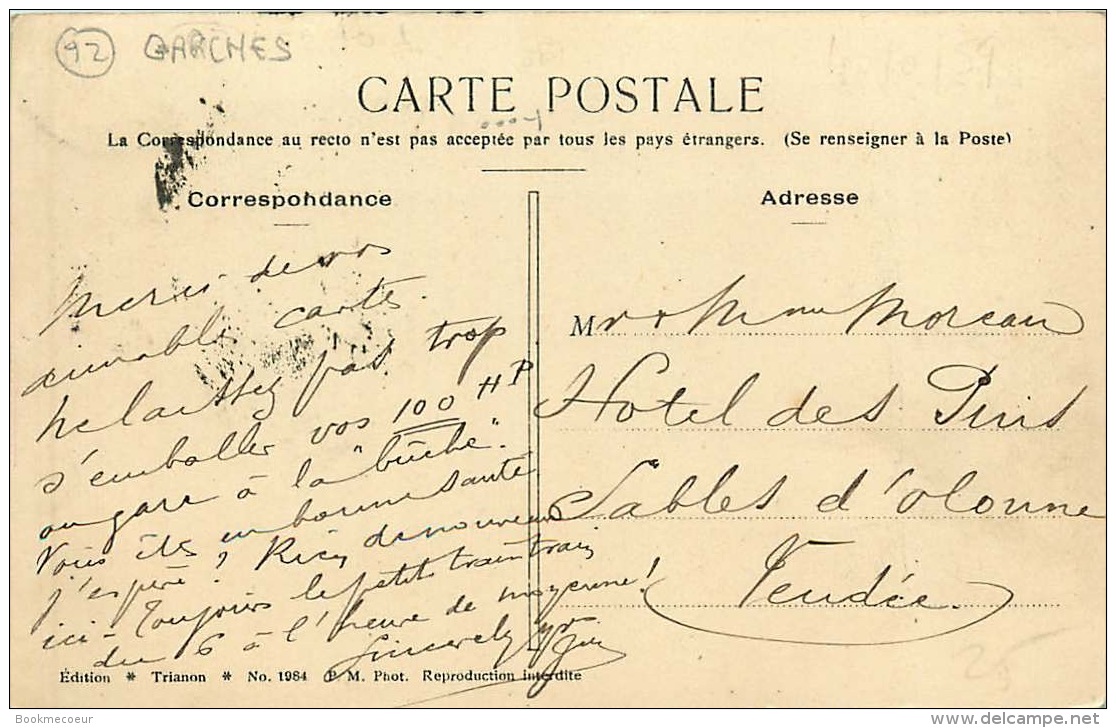 92 GARCHES
CARTE POSTALE
La Correspondance au recto n'est pas acceptée par tous les pays étrangers. (Se renseigner à la Poste)
Correspondance
Merci de vos
aimables cartes.
Ne laissez pas trop
s'emballer vos 100 HP
ou gare à la "bûche".
Vous êtes en bonne santé
j'espère? Rien de nouveau
ici - Toujours le petit traintrain
du 6 à l'heure de moyenne!
Sincerely
Adresse
Mr & Mme Moreau
Hotel des Pins
Sables d'olonne
Vendée
25
Édition * Trianon * No. 1984 P. M. Phot. Reproduction interdite
Bookmecoeur
delcampe.net